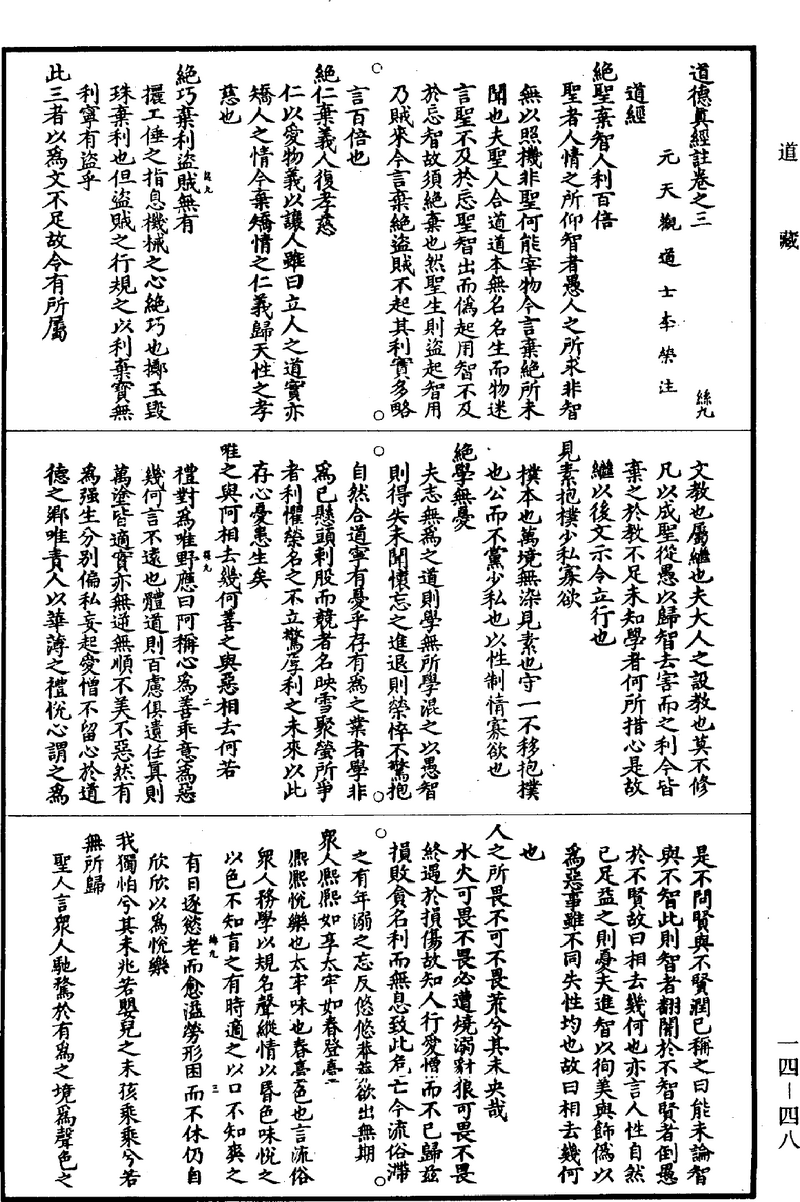 道藏
道德真經註卷之三
絲九
元天觀道士李榮注
道經
絕聖棄智人利百倍
聖者人情之所仰智者愚人之所求非智
無以照機非聖何能宰物今言棄絕所未
聞也夫聖人合道道本無名名生而物迷
言聖不及於忘聖智出而偽起用智不及
於忘智故須絕棄也然聖生則盜起智用
乃賊來今言棄絕盜賊不起其利實多略
言百倍也
絕仁棄義人復孝慈
仁以愛物義以讓人雖曰立人之道實亦
矯人之情今棄矯情之仁義歸天性之孝
慈也
絕巧棄利盜賊無有
擺工倕之指息機械之心絕巧也擲玉毀
珠棄利也但盜賊之行規之以利棄寶無
利寧有盜乎
此三者以為文不足故令有所屬
文教也屬繼也夫大人之設教也莫不修
凡以成聖從愚以歸智去害而之利今皆
棄之於教不足未知學者何所措心是故
繼以後文示令立行也
見素抱樸少私寡欲
樸本也萬境無染見素也守一不移抱樸
也公而不黨少私也以性制情寡欲也
絕學無憂
夫志無為之道則學無所學混之以愚智
則得失未聞懷忘之進退則榮悴不驚抱
自然合道寧有憂乎存有為之業者學非
為己懸頭刺股而競者名映雪聚螢所爭
者利懼榮名之不立驚厚利之未來以此
存心憂患生矣
唯之與阿相去幾何善之與惡相去何若
絲九
二
禮對為唯野應曰阿稱心為善乖意為惡
幾何言不遠也體道則百慮俱遣任真則
萬塗皆適實亦無逆無順不美不惡然有
為強生分別偏私妄起愛憎不留心於道
德之鄉唯責人以華薄之禮悅心謂之為
是不問賢與不賢潤己稱之曰能未論智
與不智此則智者翻闇於不智賢者倒愚
於不賢故曰相去幾何也亦言人性自然
已足益之則憂夫進智以徇美與飾偽以
為惡事雖不同失性均也故曰相去幾何
也
人之所畏不可不畏荒兮其未央哉
水火可畏不畏必遭燒溺豺狼可畏不畏
終遇於損傷故知人行愛憎而不已歸茲
損敗貪名利而無息致此危亡今流俗滯
之有年溺之忘反悠悠莽莽欲出無期
眾人熙熙如享太牢如春登臺
熙熙悅樂也太牢味也春臺色也言流俗
眾人務學以規名聲縱情以昏色味悅之
以色不知盲之有時適之以口不知爽之
有日逐慾老而愈溢勞形困而不休仍自
絲九
三
欣欣以為悅樂
我獨怕兮其未兆若嬰兒之未孩乘乘兮若
無所歸
聖人言眾人馳騖於有為之境為聲色之
一四—四八